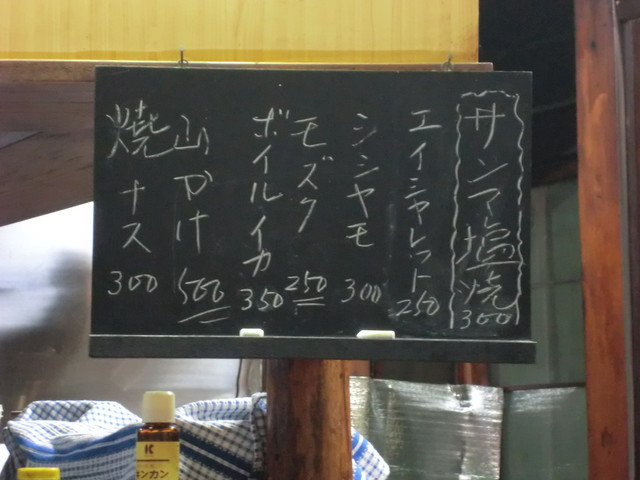 サンマ塩焼300
エイシャレット250
シシャモ300
モズク250
ボイルイカ350
山かけ500
焼ナス300
K
ンカン